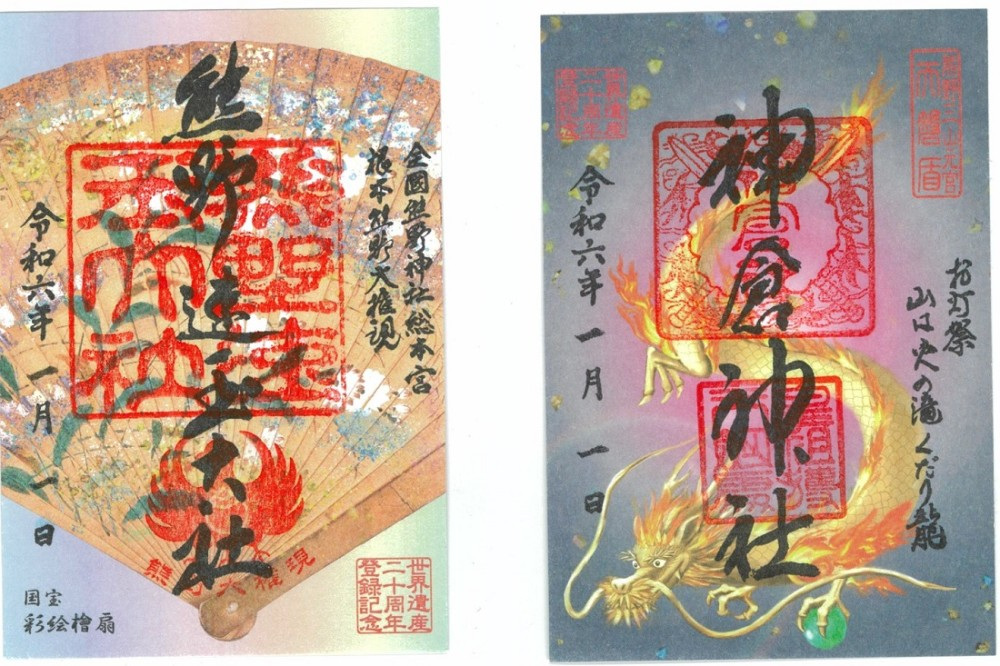 全國熊野神社総本宮
根本熊野大権現
熊野速玉大社
令和六年 一月 一日
国宝
彩絵檜扇
世界遺産
二十周年
登録記念
天磐盾
お灯祭
山は火の滝くだり龍
神倉神社
令和六年 一月 一日
世界遺産
二十周年
登録記念